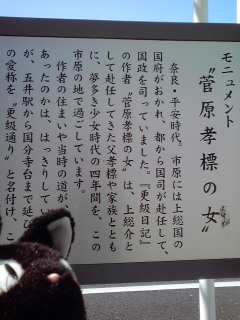 モニュメント
〝菅原孝標の女〟
奈良・平安時代、市原には上総国の
国府がおかれ、都から国司が赴任して、
国政を司っていました。『更級日記』
の作者〝菅原孝標の女〟は、上総介と
して赴任してきた父孝標や家族ととも
に、夢多き少女時代の四年間を、この
市原の地で過ごしています。
作者の住まいや当時の道が、
あったのかは、はっきりしてい
が、五井駅から国分寺台まで延び
の愛称を〝更級通り〟と名付け、こ